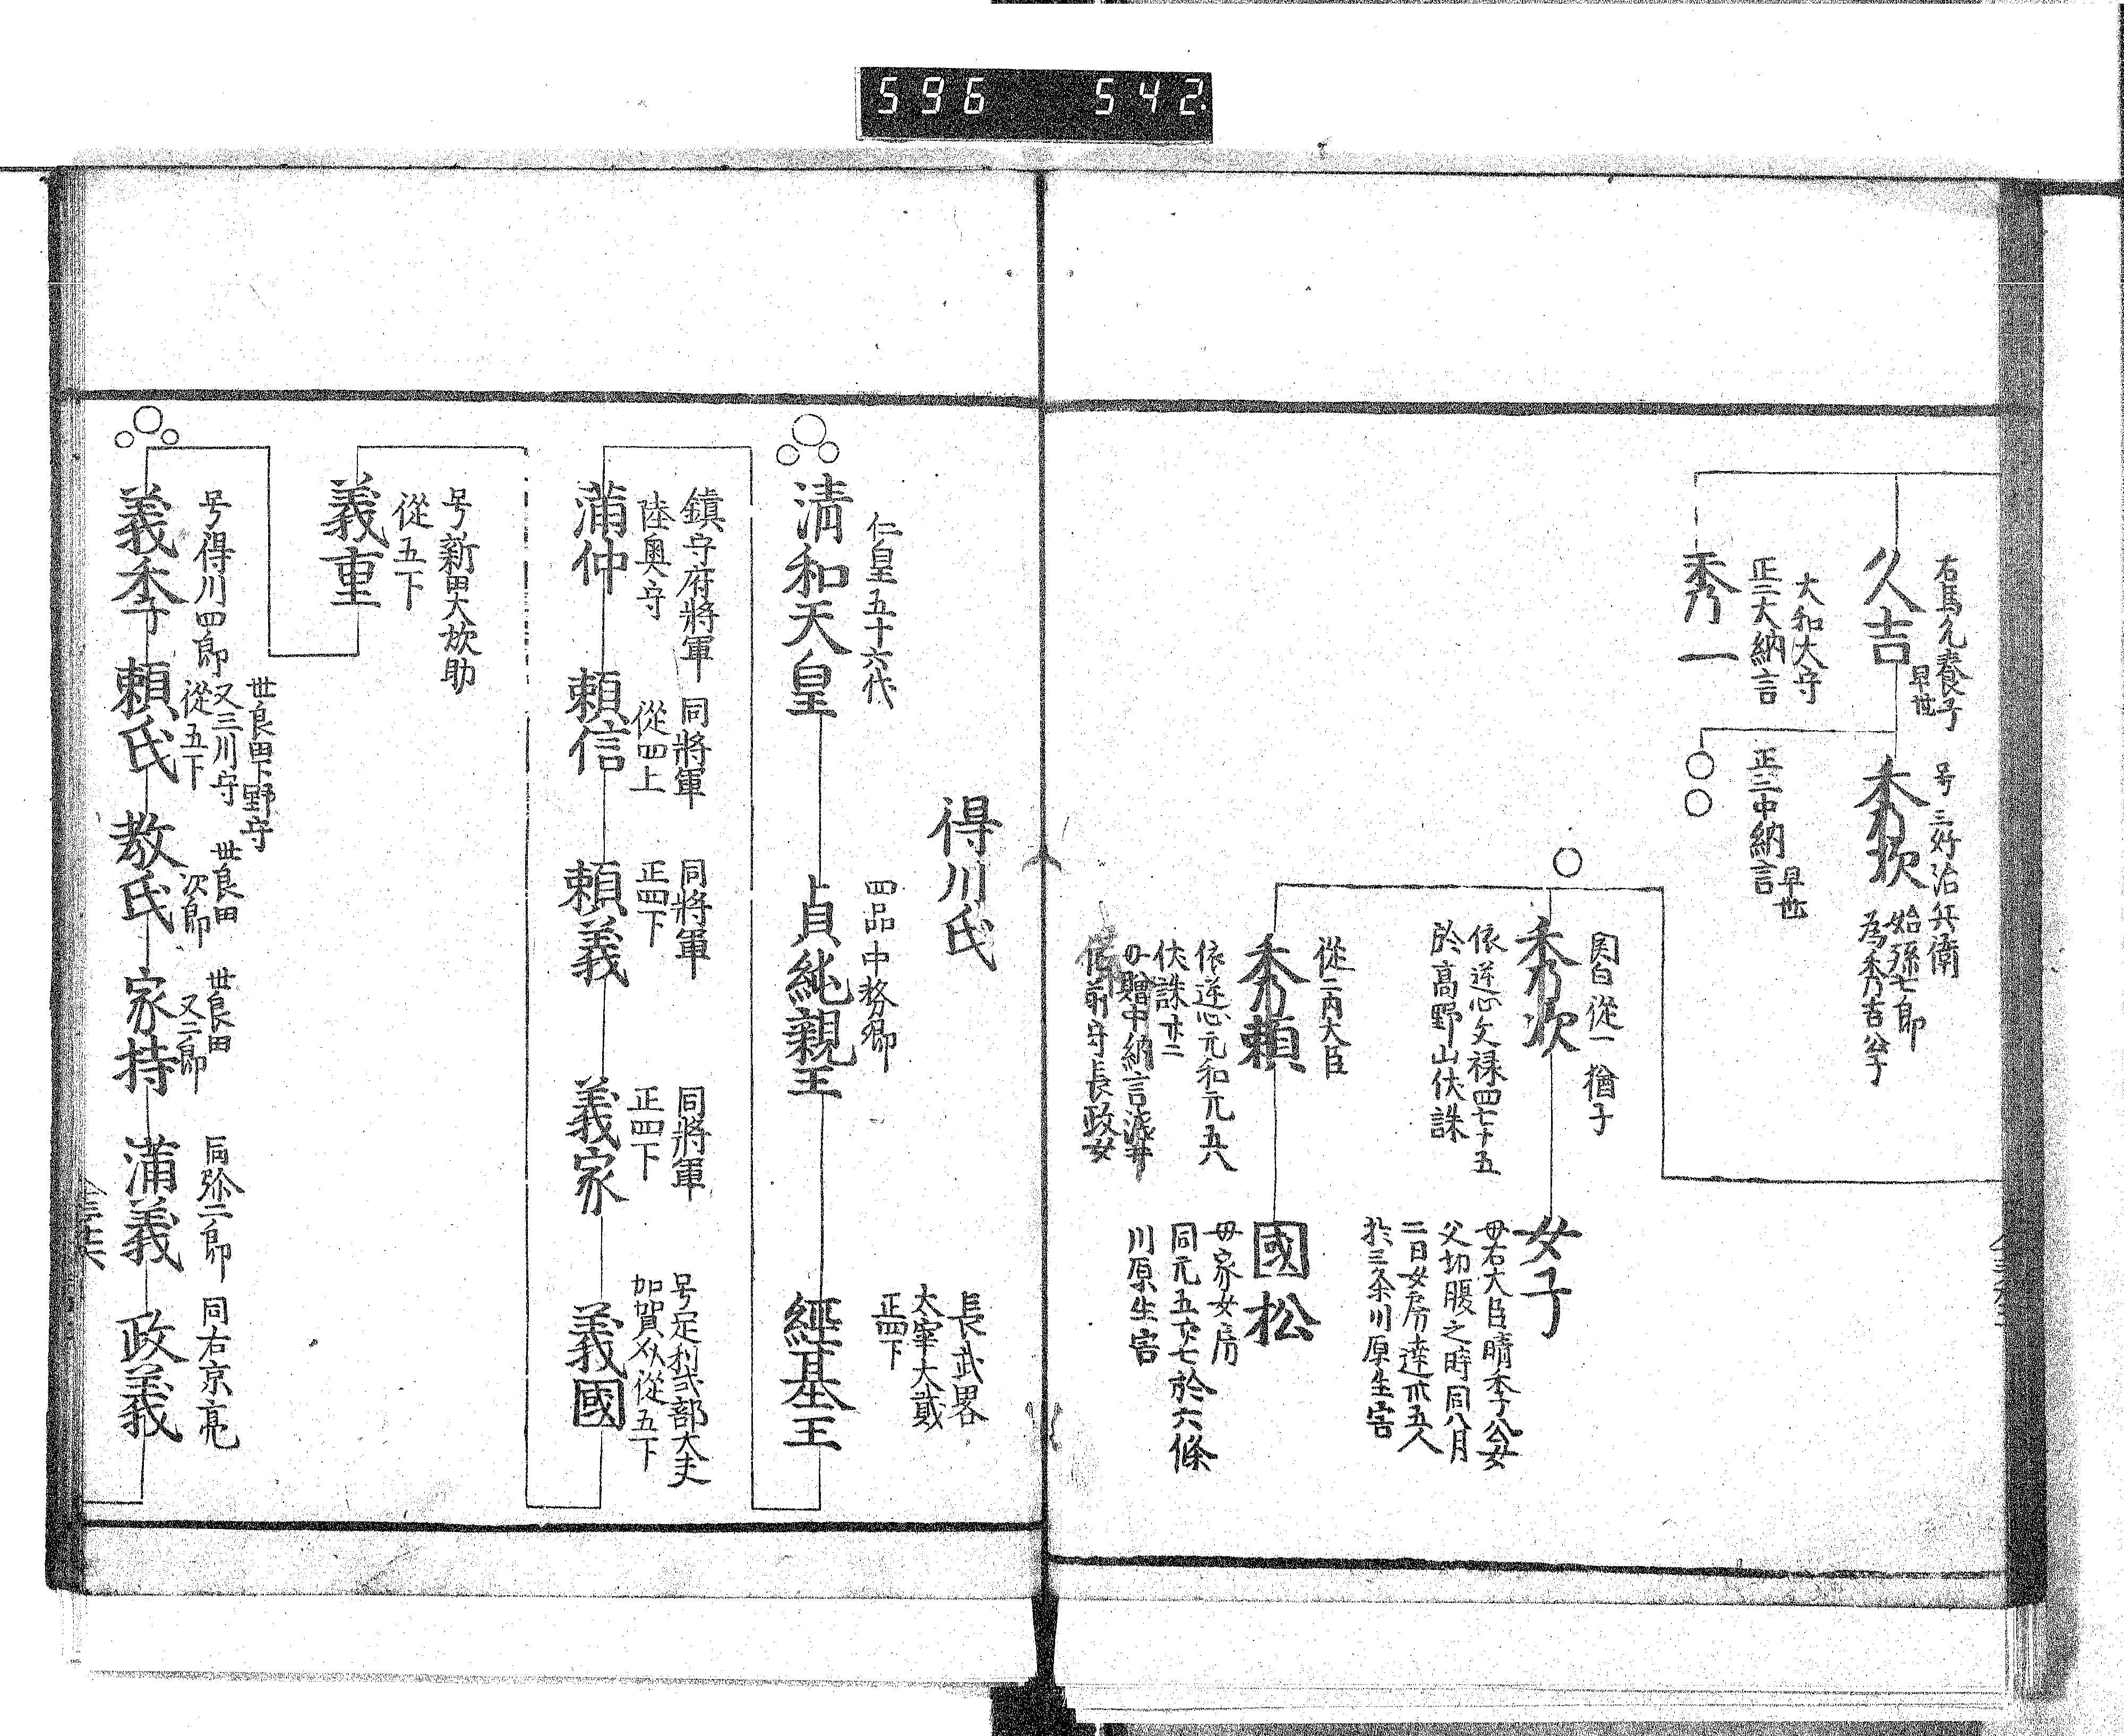 596 542
久吉
右馬允養子
早世
秀次
号三好治兵衛
始孫七郎
為秀吉公子
秀一
大和大守
正三大納言
正三中納言
早世
秀次
関白從一 猶子
依逆心文禄四七十五
於高野山伏誅
女子
母右大臣晴季公女
父切腹之時同八月
二日女房達卅五人
於三条川原生害
秀頼
從二内大臣
依逆心元和元五八
伏誅廿二
備前守長政女
國松
母家女房
同元五廿七於六條
川原生害
得川氏
清和天皇
仁皇五十六代
貞純親王
四品中務卿
經基王
長武畧
太宰大貳
正四下
満仲
鎮守府將軍
陸奥守
頼信
同將軍
從四上
頼義
同將軍
正四下
義家
同將軍
正四下
義國
号足利式部大夫
加賀介從五下
義重
号新田大炊助
從五下
義季
号得川四郎
頼氏
世良田下野守
又三川守
從五下
教氏
世良田
次郎
家持
世良田
又二郎
満義
同弥二郎
政義
同右京亮